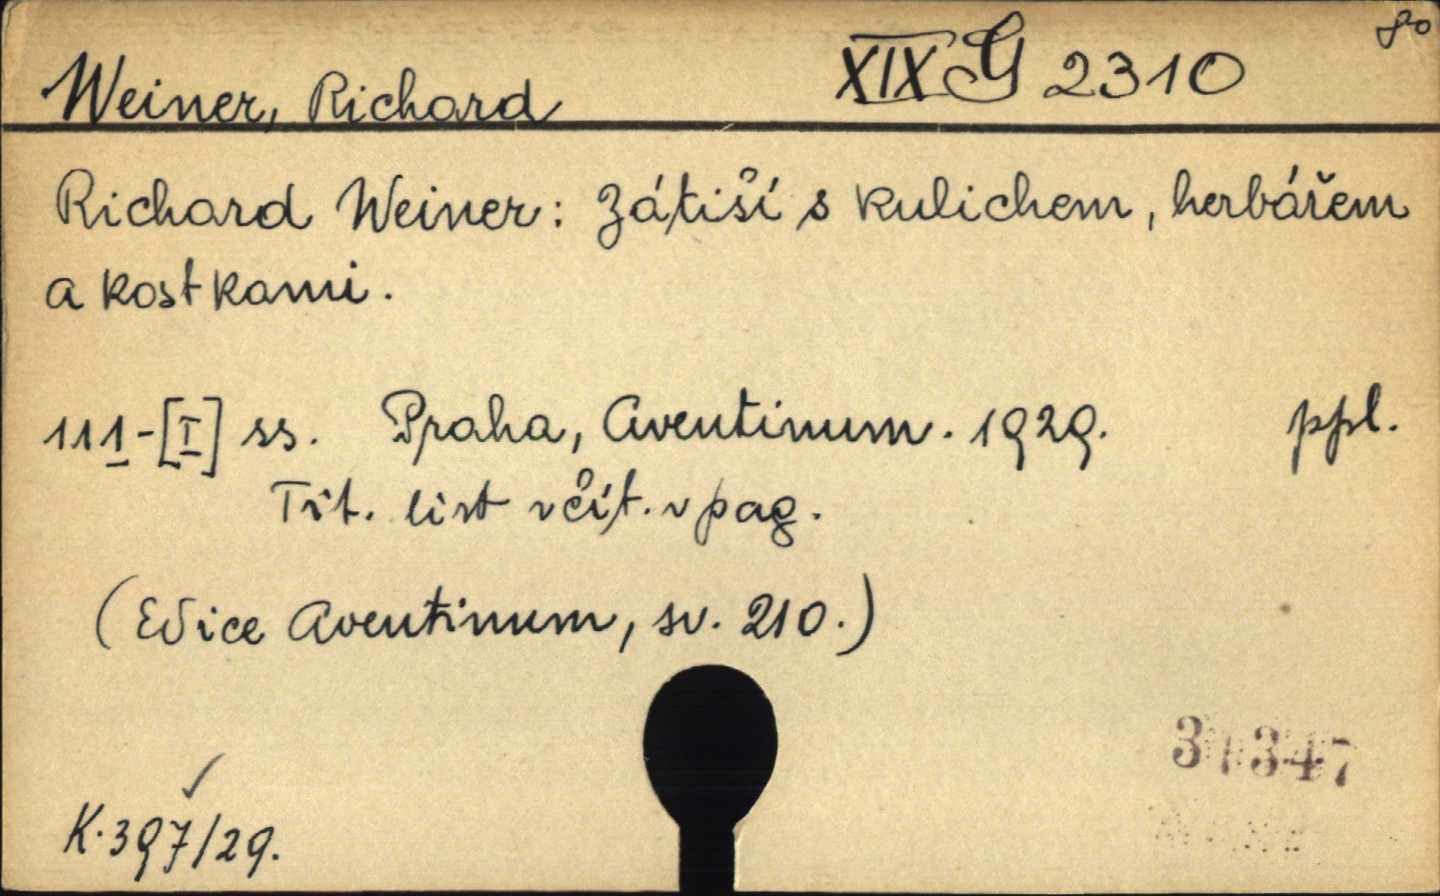 80
Weiner, Richard XIX G 2310
Richard Weiner: Zátiší s kulichem, herbářem
a kostkami.
111-[I] ss. Praha, Aventinum. 1929. ppl.
Tit. list včít. v pag.
(Edice Aventinum, sv. 210.)
31347
K.397/29.